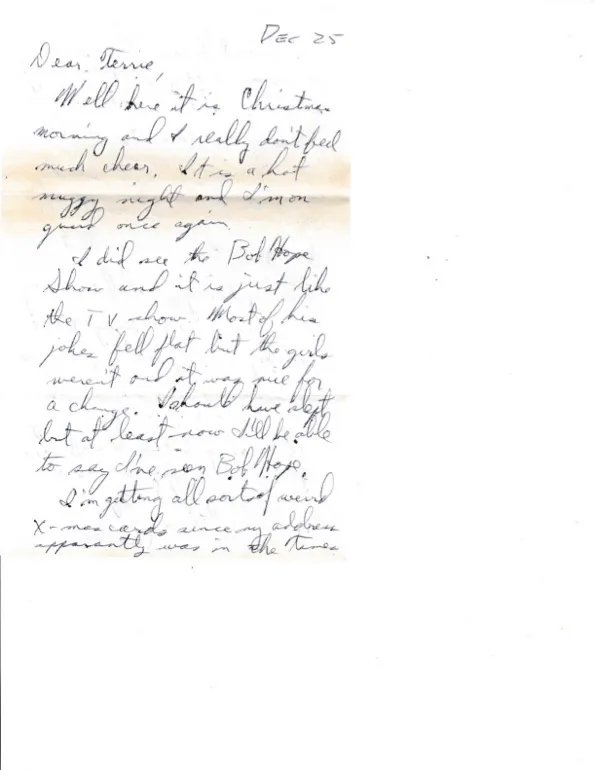 Dec 25
Dear Terrie,
Well here it is Christmas
morning and I really don't feel
much cheer. It is a hot
muggy night and I'm on
guard once again.
I did see the Bob Hope
Show and it is just like
the TV show. Most of his
jokes fell flat but the girls
weren't and it was nice for
a change. I should have slept
but at least now I'll be able
to say I've seen Bob Hope.
I'm getting all sorts of weird
X-mas cards since my address
apparantly was in the Times